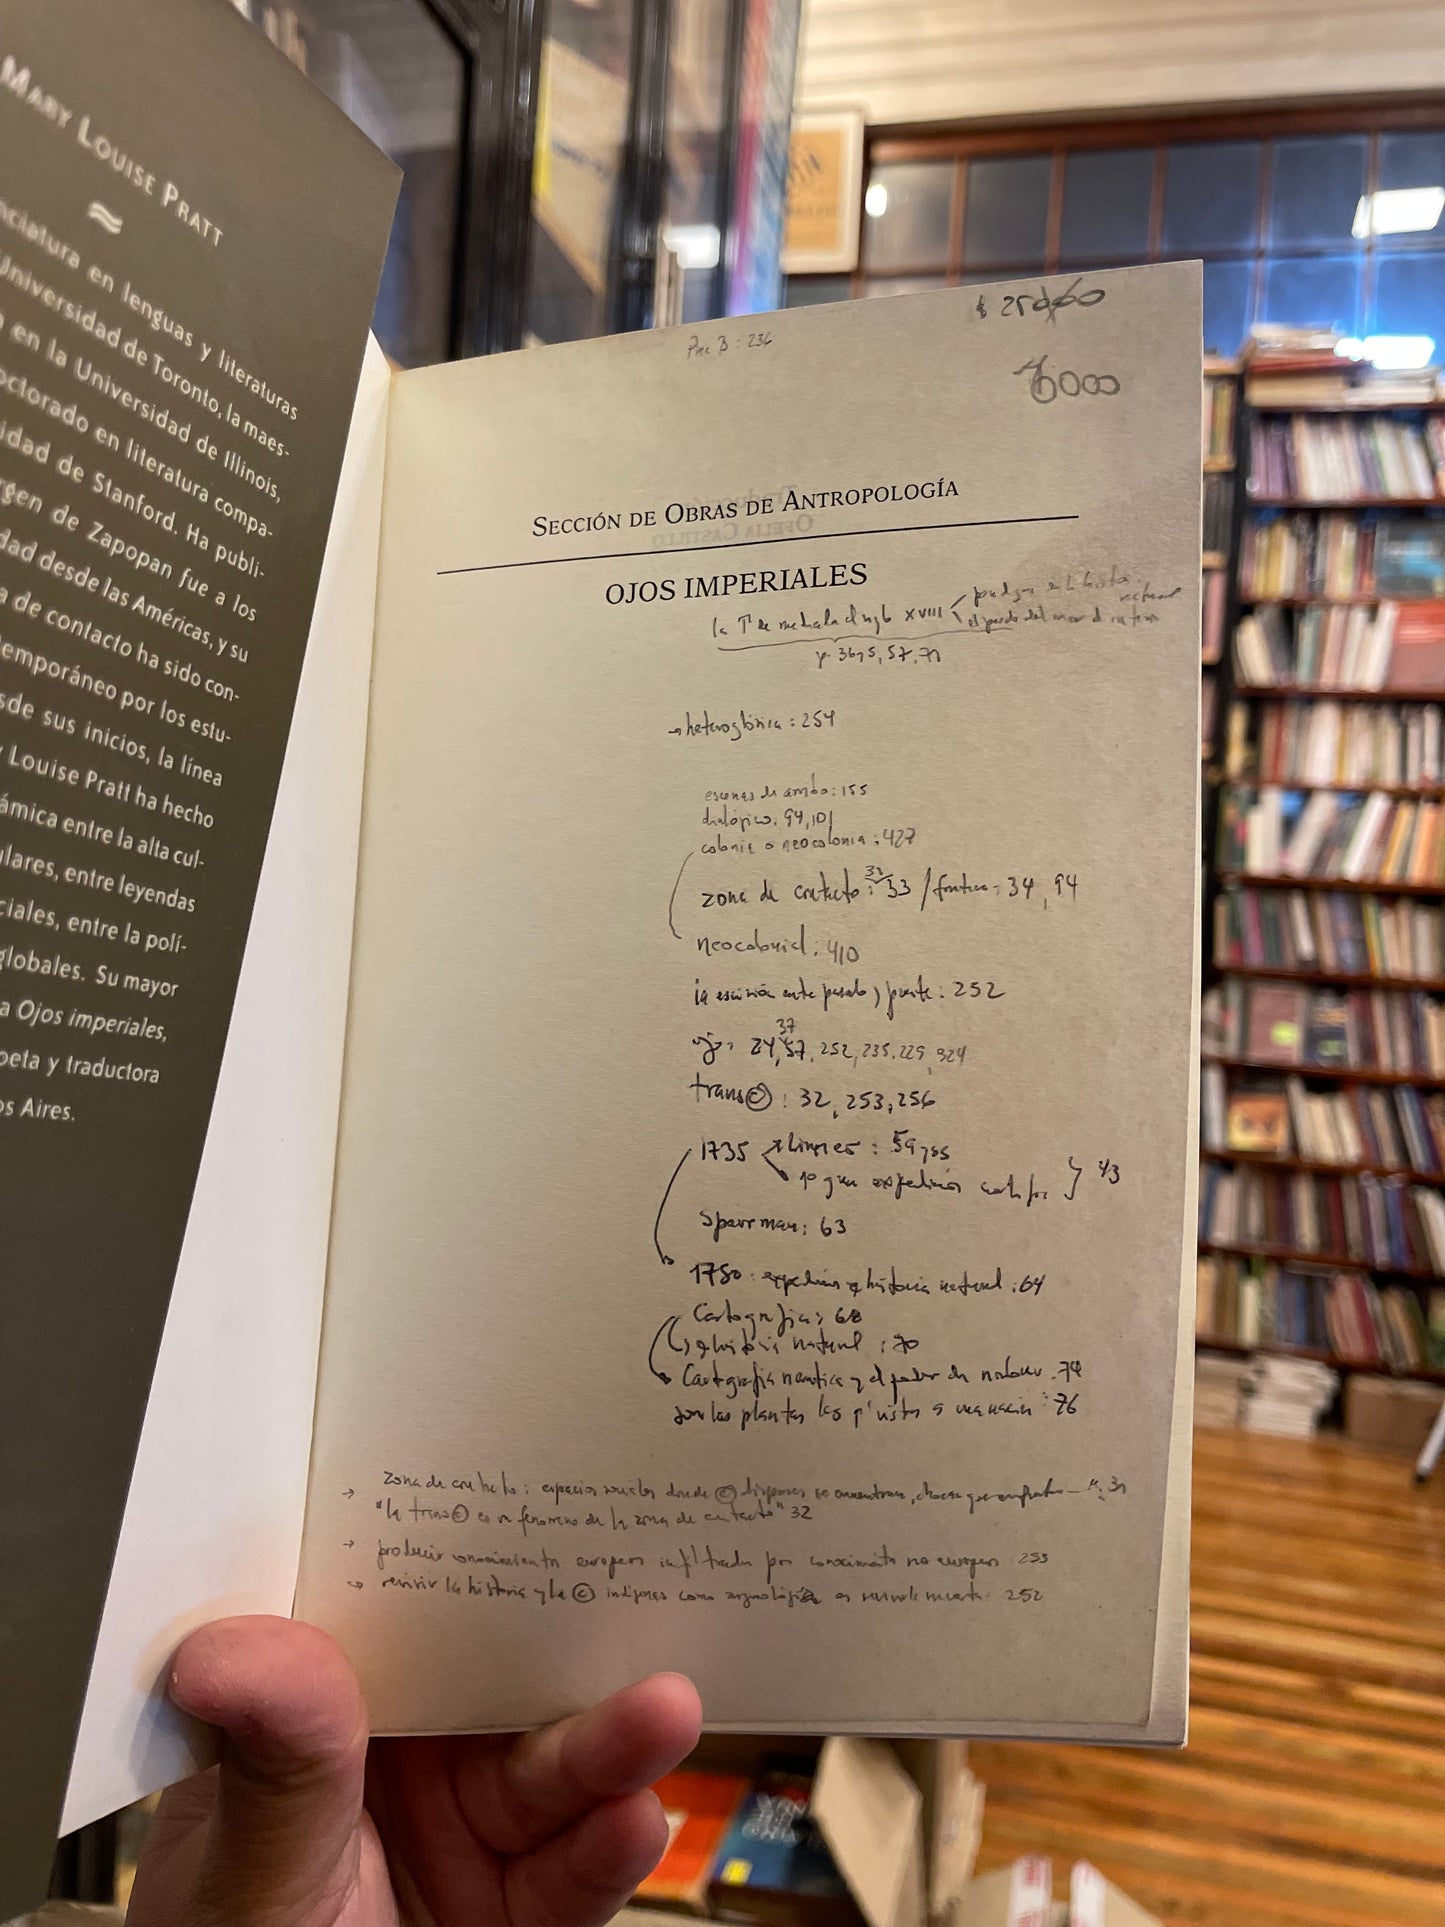 MARY LOUISE PRATT
nciatura en lenguas y literaturas
Universidad de Toronto, la maes-
en la Universidad de Illinois,
octorado en literatura compa-
idad de Stanford. Ha publi-
rgen de Zapopan fue a los
dad desde las Américas, y su
a de contacto ha sido con-
temporáneo por los estu-
sde sus inicios, la línea
y Louise Pratt ha hecho
ámica entre la alta cul-
ulares, entre leyendas
ciales, entre la polí-
globales. Su mayor
a Ojos imperiales,
oeta y traductora
os Aires.
B : 236
SECCIÓN DE OBRAS DE ANTROPOLOGÍA
OFELIA CASTILLO
OJOS IMPERIALES
XVIII
57, 71
→ heteroglosia : 254
: 155
dialógico: 94, 101
colonia o neocolonia : 427
zona de contacto : 32 33 / frontera : 34, 94
neocolonial : 410
la escisión entre pasado y presente : 252
ojo : 24, 37 57, 252, 235, 229, 324
trans© : 32, 253, 256
1735 Linneo : 59, 55
1a gran expedición científica } 43
Sparrman : 63
1780 : expedición historia natural : 64
Cartografía : 68
historia natural : 70
Cartografía náutica y el poder de nombrar : 74
son las plantas las 76
→ zona de contacto : espacios sociales donde © dispares se encuentran, chocan y se enfrentan 31
"la trans© es un fenómeno de la zona de contacto" 32
→ producir conocimiento europeo infiltrado por conocimiento no europeo : 253
→ revivir la historia y la © indígenas como arqueología es 252